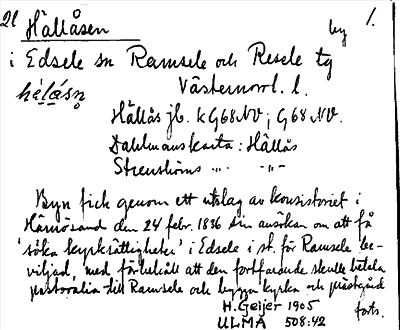 21 Hällåsen by 1.
i Edsele sn Ramsele och Resele tg
Västernorrl. l.
hä̀lǻsn̥
Hällås jb. KG68NV; G68 NV.
Dahlmans karta: Hällås
Streuströms „.. -„-
Byn fick genom ett utslag av konsistoriet i
Härnösand den 24 febr. 1836 sin ansökan om att få
'söka kyrkrättigheter' i Edsele i st. för Ramsele be-
viljad, med förbehåll att den fortfarande skulle betala
pastoralia till Ramsele och bygga kyrka och prästgård
forts.
H. Geijer 1905
ULMA 508:42